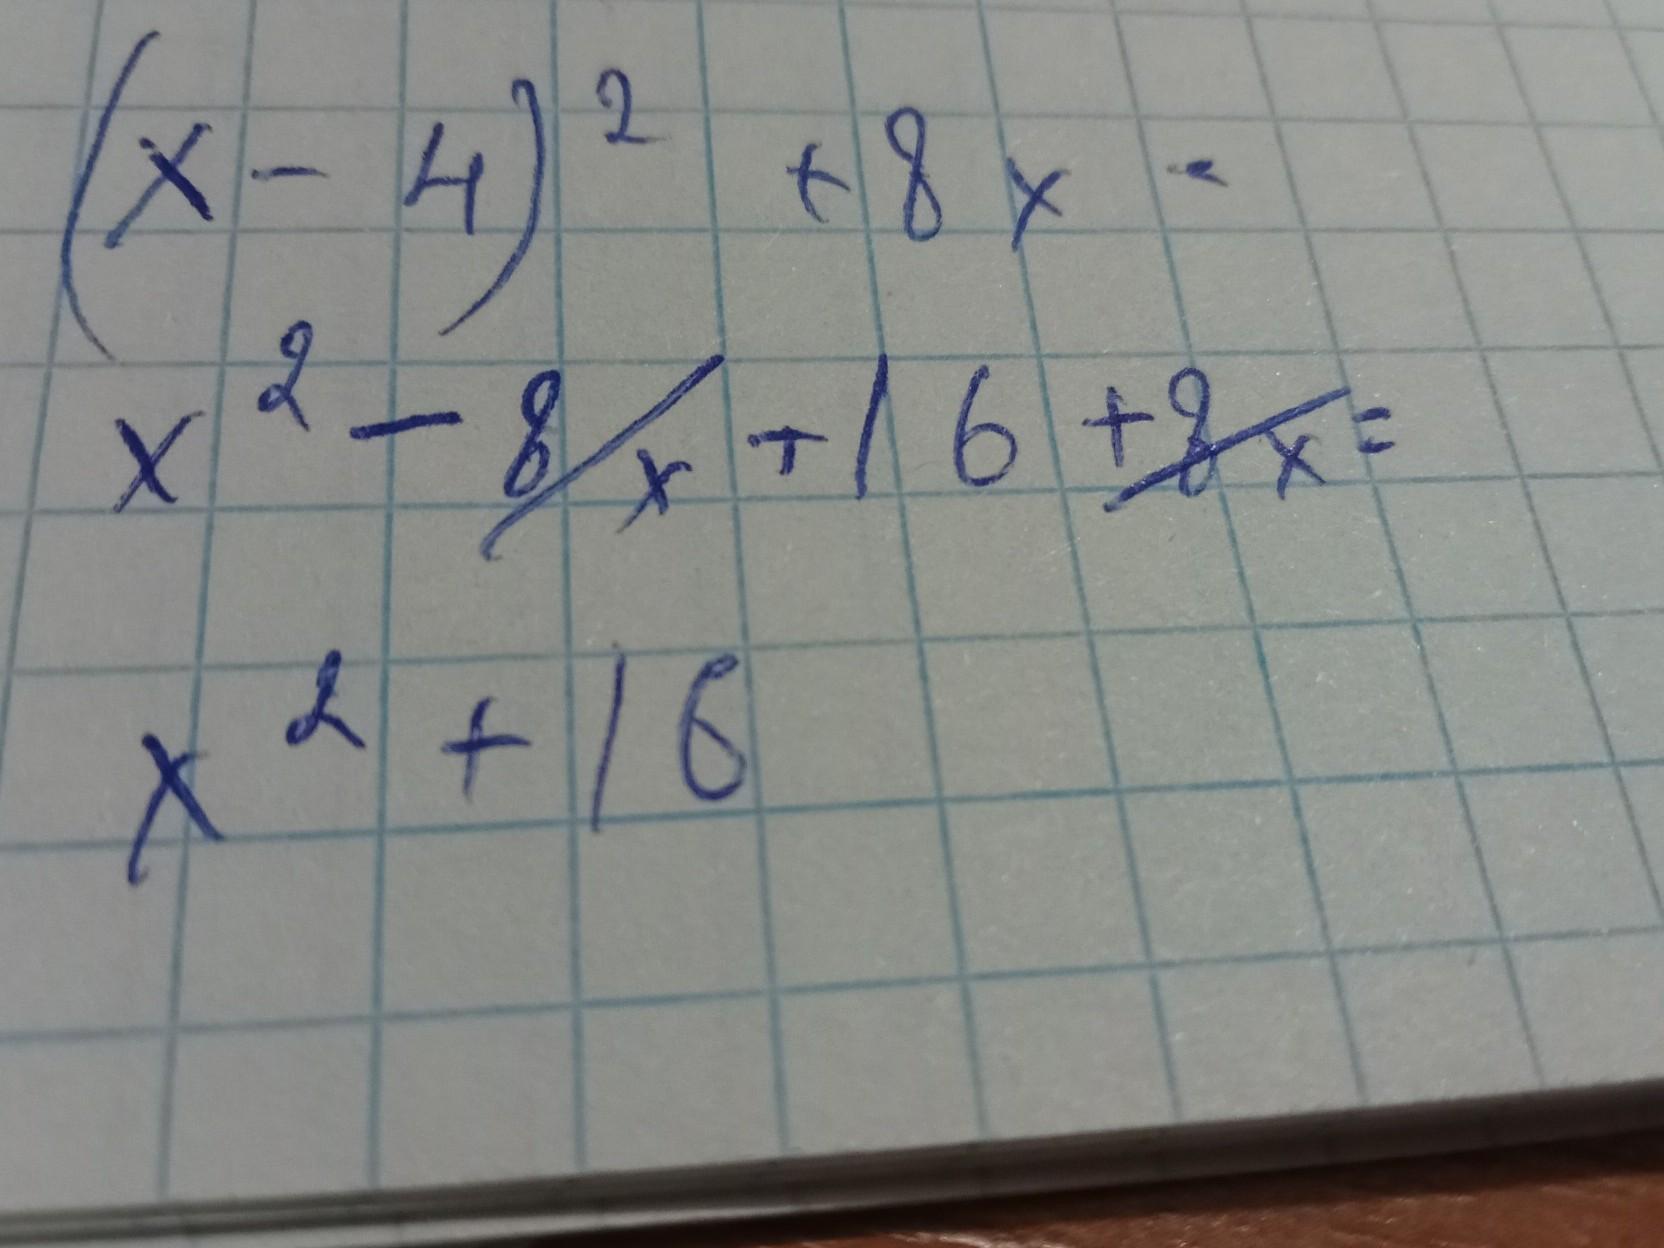 (x - 4)² + 8x =
x² - 8x + 16 + 8x =
x² + 16